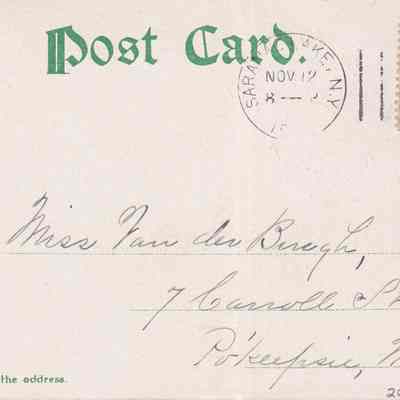 Post Card.
SARA KE, N.Y.
NOV 12
8
Miss Van der Burgh,
7 Carroll St
Po'keepsie, N
the address.